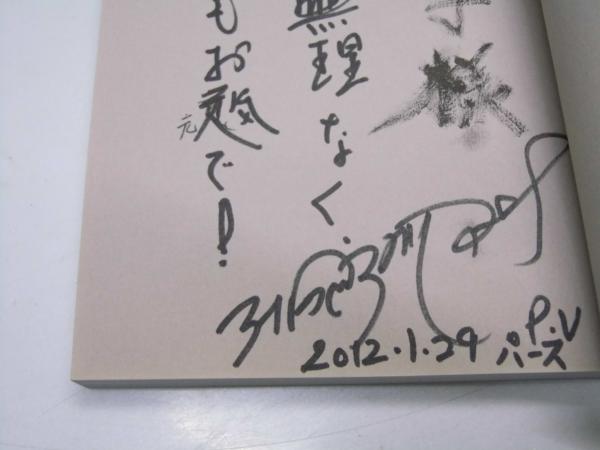 様
無理なく.
もお元気で!
2012.1.29
P.V
パース